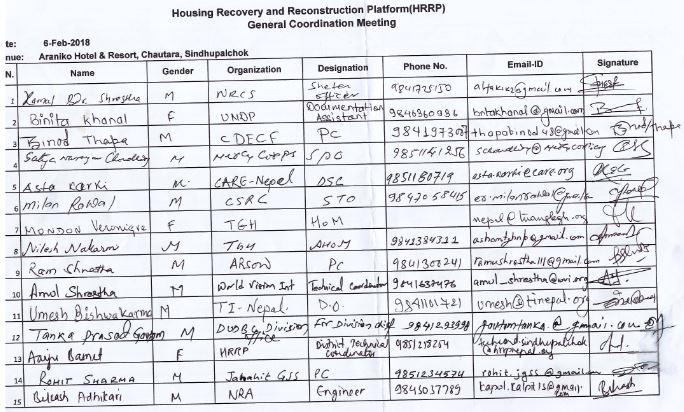 Housing Recovery and Reconstruction Platform(HRRP)
General Coordination Meeting
te: 6-Feb-2018
nue: Araniko Hotel & Resort, Chautara, Sindhupalchok
N. Name Gender Organization Designation Phone No. Email-ID Signature
1 Kamal Shrestha M NRCS Shelter officer
2 Binita Khanal F UNDP Documentation Assistant 9846360986 bntakhanal@gmail.com
3 Binod Thapa M CDECF PC thapabinod43@gmail.com
4 M Mercy Corps SPO
5 Asta Karki M CARE-Nepal DSC 9851180719 asta.karki@care.org
6 Milan M CSRC STO 9847058415
7 MONDON Veronique F TGH HoM nepal@trianglegh.org
8 Nilesh Nakarmi M TGH AHOM 9841384311
9 Ram Shrestha M ARSOW PC 9841300241 ramushrestha111@gmail.com
10 Amul Shrestha M World Vision Int Technical Coordinator amul_shrestha@wvi.org
11 Umesh Bishwakarma M TI-Nepal. D.O. 9841101721 umesh@tinepal.org
12 Tanka Prasad Gautam M Division office Division gautamtanka.@gmail.com
13 Aayu F HRRP District Technical Coordinator 9851218254
14 ROHIT SHARMA M GSS PC 9851234574 rohit.jgss@gmail.com
15 Bikash Adhikari M NRA Engineer 9845037789 Bikash